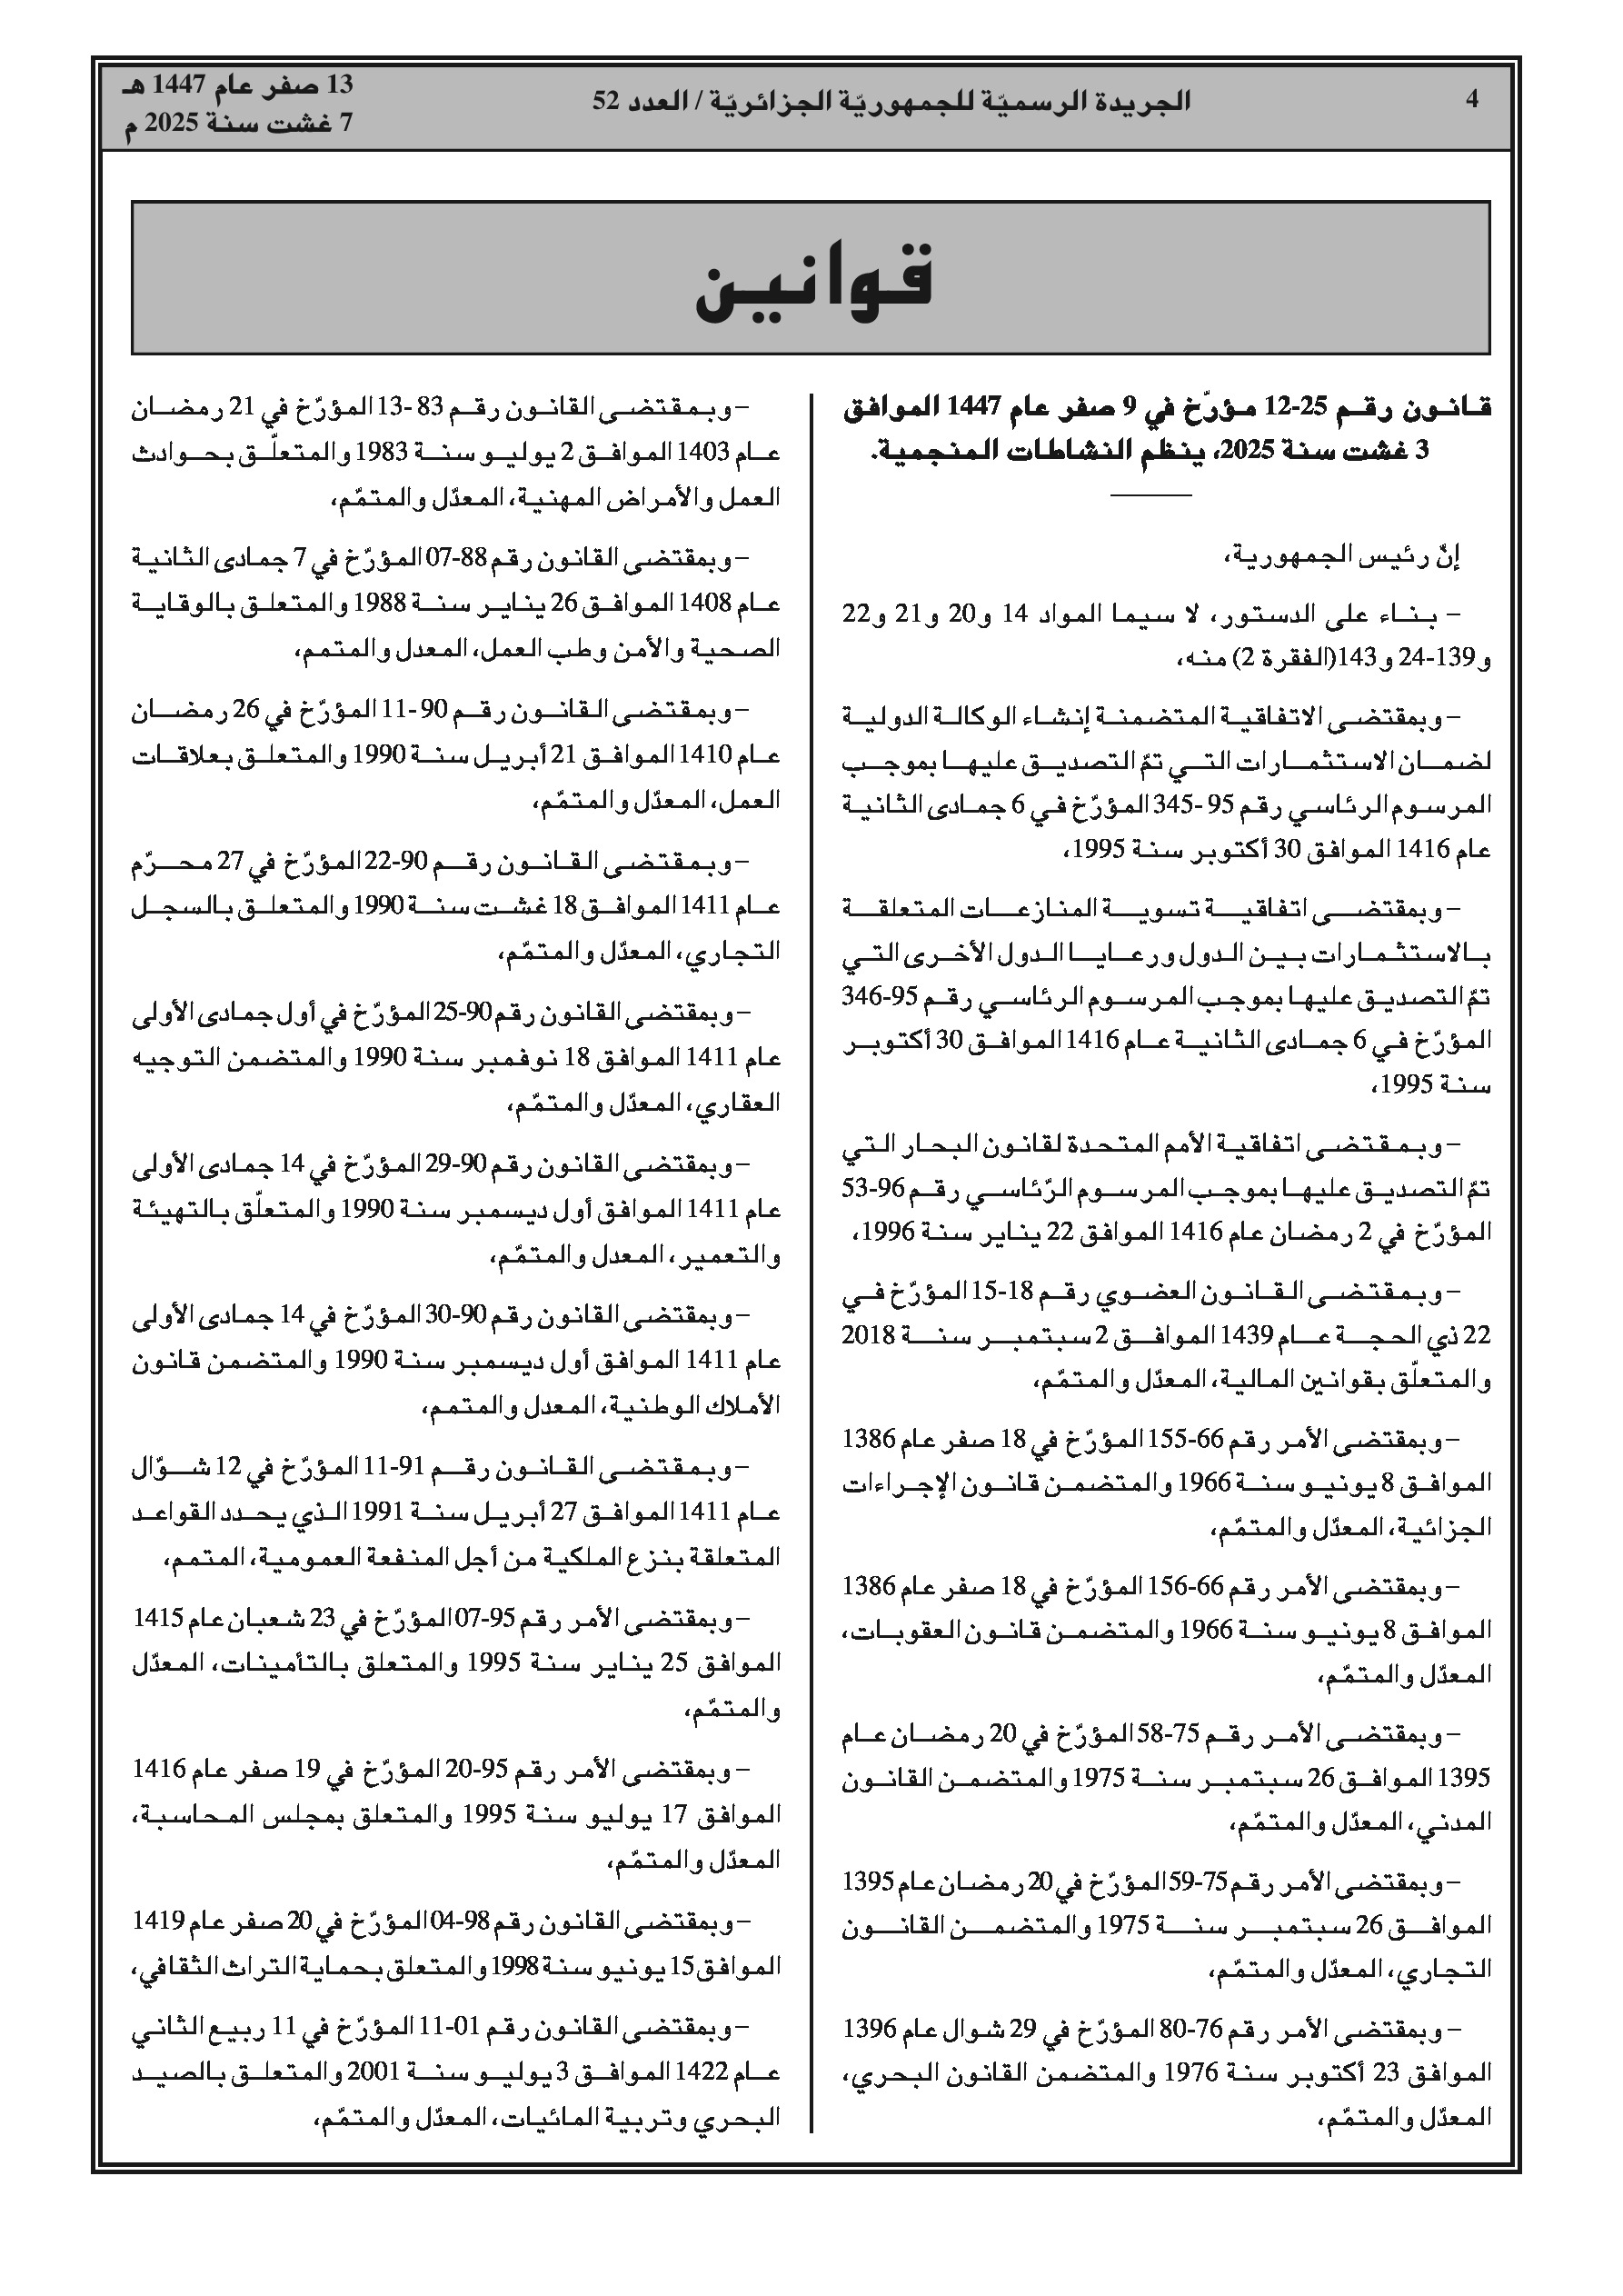 4
الجريدة الرسميّة للجمهوريّة الجزائريّة / العدد 52
13 صفر عام 1447 هـ
7 غشت سنة 2025 م
قوانين
قانون رقم 25-12 مؤرّخ في 9 صفر عام 1447 الموافق
3 غشت سنة 2025، ينظم النشاطات المنجمية.
إنّ رئيس الجمهورية،
– بناء على الدستور، لا سيما المواد 14 و20 و21 و22
و24-139 و143(الفقرة 2) منه،
– وبمقتضى الاتفاقية المتضمنة إنشاء الوكالة الدولية
لضمان الاستثمارات التي تمّ التصديق عليها بموجب
المرسوم الرئاسي رقم 95 -345 المؤرّخ في 6 جمادى الثانية
عام 1416 الموافق 30 أكتوبر سنة 1995،
– وبمقتضى اتفاقية تسوية المنازعات المتعلقة
بالاستثمارات بين الدول ورعايا الدول الأخرى التي
تمّ التصديق عليها بموجب المرسوم الرئاسي رقم 95-346
المؤرّخ في 6 جمادى الثانية عام 1416 الموافق 30 أكتوبر
سنة 1995،
– وبمقتضى اتفاقية الأمم المتحدة لقانون البحار التي
تمّ التصديق عليها بموجب المرسوم الرّئاسي رقم 96-53
المؤرّخ في 2 رمضان عام 1416 الموافق 22 يناير سنة 1996،
– وبمقتضى القانون العضوي رقم 18-15 المؤرّخ في
22 ذي الحجة عام 1439 الموافق 2 سبتمبر سنة 2018
والمتعلّق بقوانين المالية، المعدّل والمتمّم،
– وبمقتضى الأمر رقم 66-155 المؤرّخ في 18 صفر عام 1386
الموافق 8 يونيو سنة 1966 والمتضمن قانون الإجراءات
الجزائية، المعدّل والمتمّم،
– وبمقتضى الأمر رقم 66-156 المؤرّخ في 18 صفر عام 1386
الموافق 8 يونيو سنة 1966 والمتضمن قانون العقوبات،
المعدّل والمتمّم،
– وبمقتضى الأمر رقم 75-58 المؤرّخ في 20 رمضان عام
1395 الموافق 26 سبتمبر سنة 1975 والمتضمن القانون
المدني، المعدّل والمتمّم،
– وبمقتضى الأمر رقم 75-59 المؤرّخ في 20 رمضان عام 1395
الموافق 26 سبتمبر سنة 1975 والمتضمن القانون
التجاري، المعدّل والمتمّم،
– وبمقتضى الأمر رقم 76-80 المؤرّخ في 29 شوال عام 1396
الموافق 23 أكتوبر سنة 1976 والمتضمن القانون البحري،
المعدّل والمتمّم،
– وبمقتضى القانون رقم 83 -13 المؤرّخ في 21 رمضان
عام 1403 الموافق 2 يوليو سنة 1983 والمتعلّق بحوادث
العمل والأمراض المهنية، المعدّل والمتمّم،
– وبمقتضى القانون رقم 88-07 المؤرّخ في 7 جمادى الثانية
عام 1408 الموافق 26 يناير سنة 1988 والمتعلق بالوقاية
الصحية والأمن وطب العمل، المعدل والمتمم،
– وبمقتضى القانون رقم 90 -11 المؤرّخ في 26 رمضان
عام 1410 الموافق 21 أبريل سنة 1990 والمتعلق بعلاقات
العمل، المعدّل والمتمّم،
– وبمقتضى القانون رقم 90-22 المؤرّخ في 27 محرّم
عام 1411 الموافق 18 غشت سنة 1990 والمتعلق بالسجل
التجاري، المعدّل والمتمّم،
– وبمقتضى القانون رقم 90-25 المؤرّخ في أول جمادى الأولى
عام 1411 الموافق 18 نوفمبر سنة 1990 والمتضمن التوجيه
العقاري، المعدّل والمتمّم،
– وبمقتضى القانون رقم 90-29 المؤرّخ في 14 جمادى الأولى
عام 1411 الموافق أول ديسمبر سنة 1990 والمتعلّق بالتهيئة
والتعمير، المعدل والمتمّم،
– وبمقتضى القانون رقم 90-30 المؤرّخ في 14 جمادى الأولى
عام 1411 الموافق أول ديسمبر سنة 1990 والمتضمن قانون
الأملاك الوطنية، المعدل والمتمم،
– وبمقتضى القانون رقم 91-11 المؤرّخ في 12 شوّال
عام 1411 الموافق 27 أبريل سنة 1991 الذي يحدد القواعد
المتعلقة بنزع الملكية من أجل المنفعة العمومية، المتمم،
– وبمقتضى الأمر رقم 95-07 المؤرّخ في 23 شعبان عام 1415
الموافق 25 يناير سنة 1995 والمتعلق بالتأمينات، المعدّل
والمتمّم،
– وبمقتضى الأمر رقم 95-20 المؤرّخ في 19 صفر عام 1416
الموافق 17 يوليو سنة 1995 والمتعلق بمجلس المحاسبة،
المعدّل والمتمّم،
– وبمقتضى القانون رقم 98-04 المؤرّخ في 20 صفر عام 1419
الموافق 15 يونيو سنة 1998 والمتعلق بحماية التراث الثقافي،
– وبمقتضى القانون رقم 01-11 المؤرّخ في 11 ربيع الثاني
عام 1422 الموافق 3 يوليو سنة 2001 والمتعلق بالصيد
البحري وتربية المائيات، المعدّل والمتمّم،